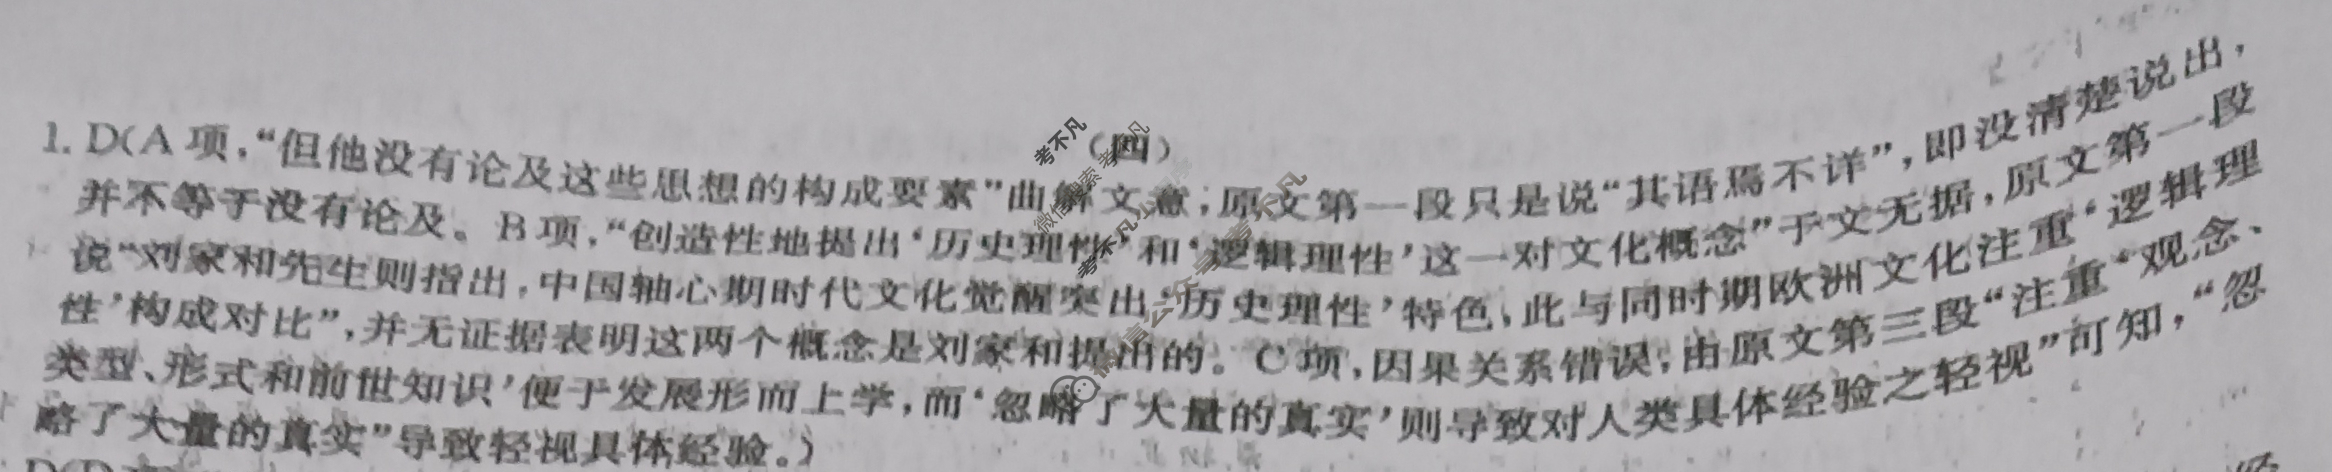 （四）
1. D(A 项,“但他没有论及这些思想的构成要素”曲解文意;原文第一段只是说“其语焉不详”,即没清楚说出,
并不等于没有论及。B 项,“创造性地提出‘历史理性’和‘逻辑理性’这一对文化概念”于文无据,原文第一段
说“刘家和先生则指出,中国轴心期时代文化觉醒突出‘历史理性’特色,此与同时期欧洲文化注重‘逻辑理
性’构成对比”,并无证据表明这两个概念是刘家和提出的。C 项,因果关系错误;由原文第三段“注重‘观念、
类型、形式和前世知识’便于发展形而上学,而‘忽略了大量的真实’则导致对人类具体经验之轻视”可知,“忽
略了大量的真实”导致轻视具体经验。)
考不凡